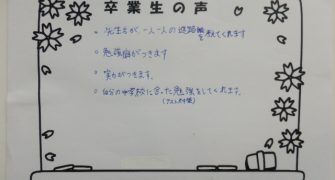 卒業生の声
・先生方が一人一人の進路を教えてくれます
・勉強習がつきます
・実力がつきます。
・自分の中学校に合った勉強をしてくれます。
(テスト対策)